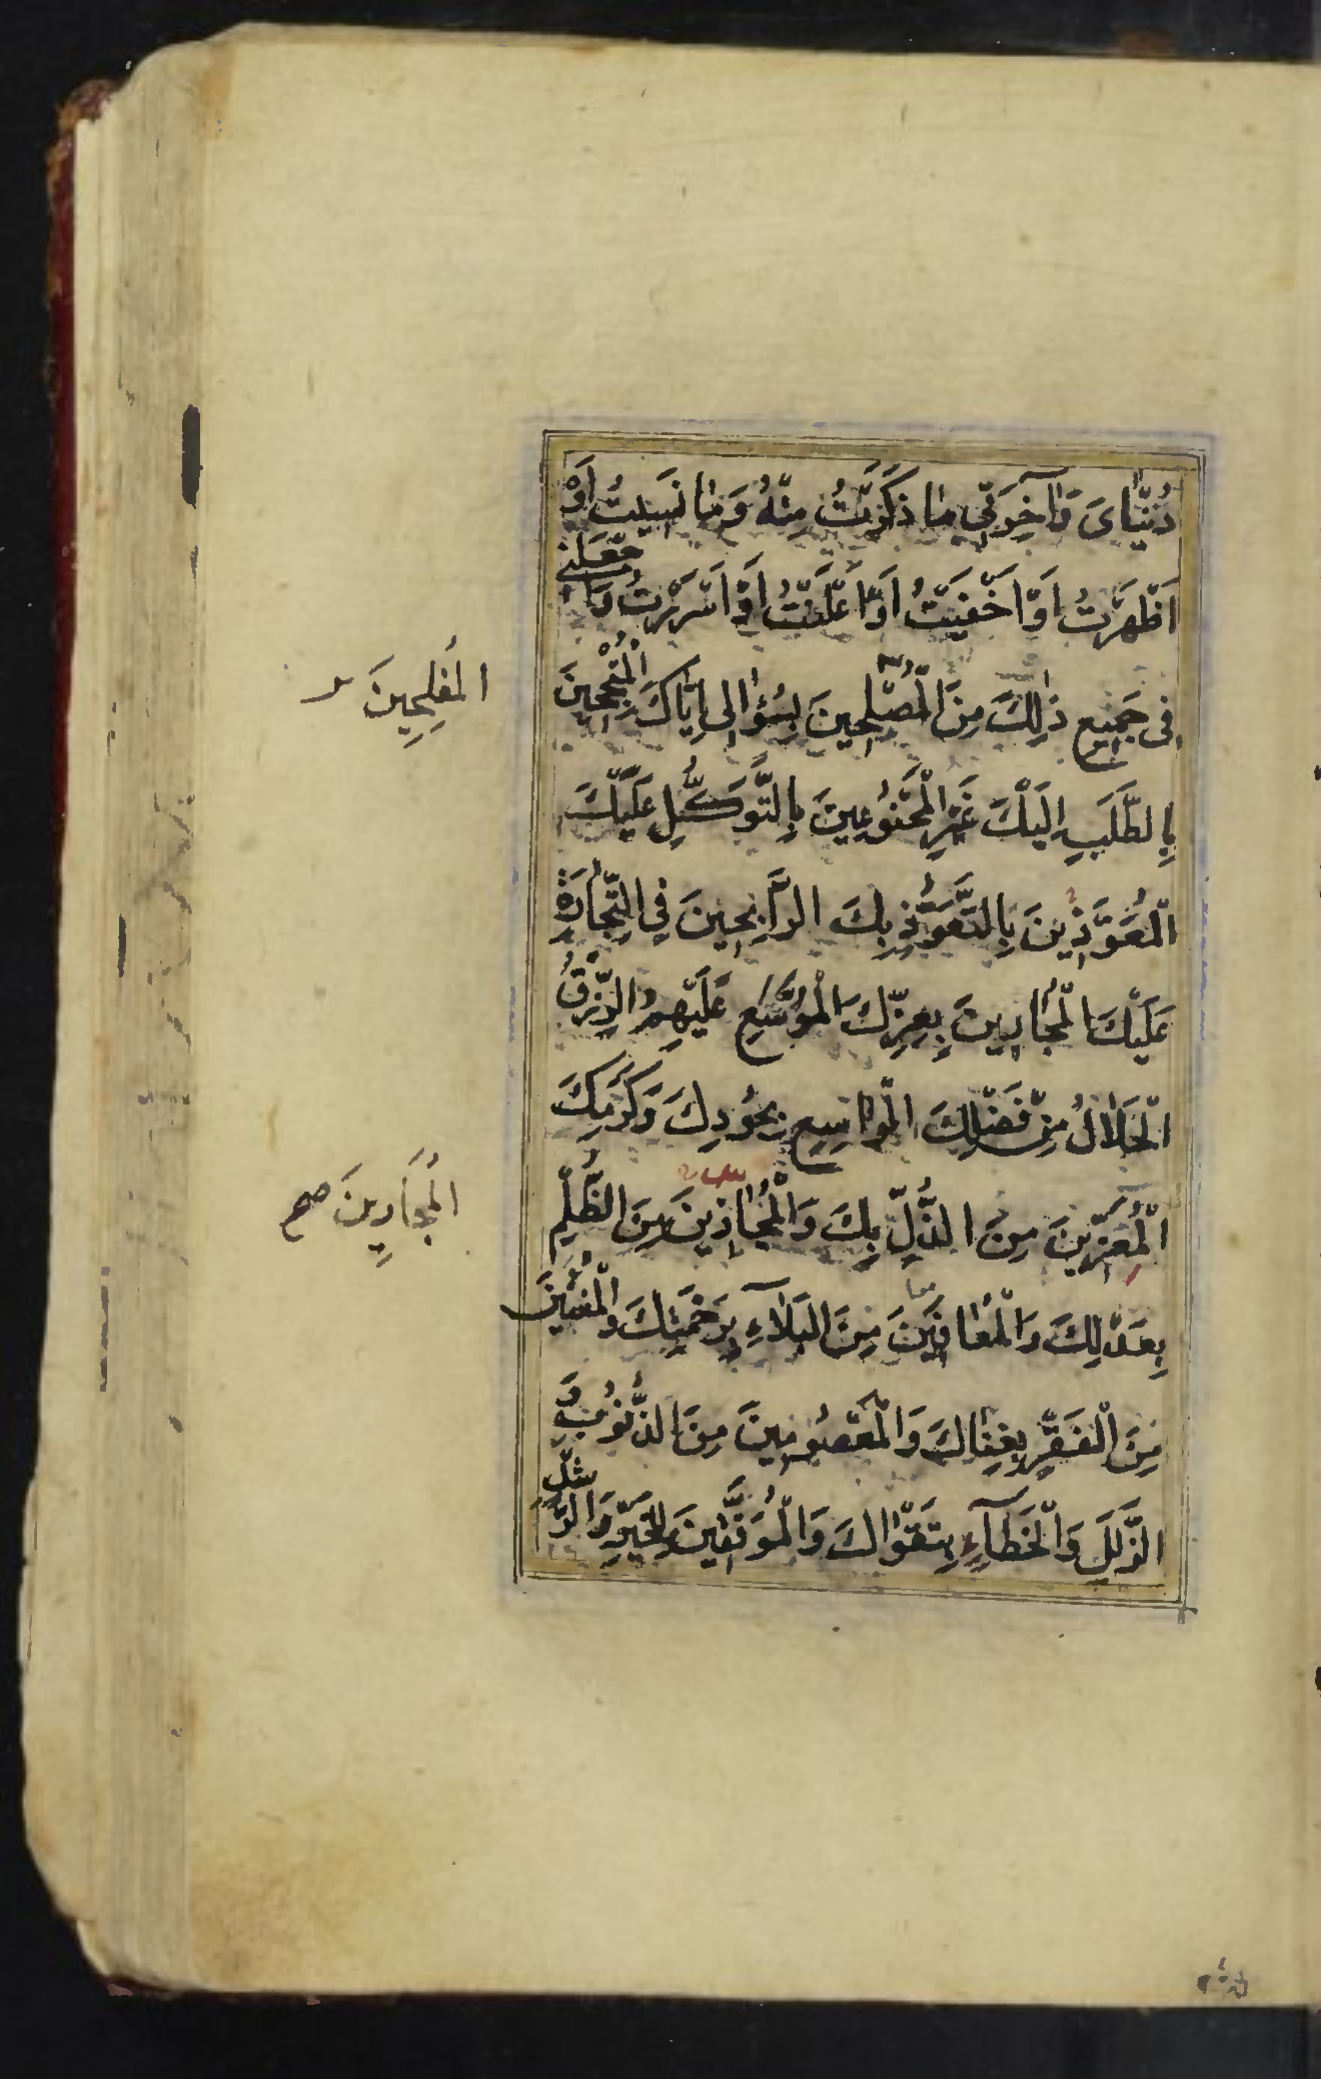 دُنْيَاىَ وَآخِرَتِي مَا ذَكَرْتُ مِنْهُ وَمَا نَسِيتُ أَوْ
اَظْهَرْتُ اَوْ اَخْفَيْتُ اَوْ اَعْلَنْتُ اَوْ اَسْرَرْتُ وَاجْعَلْنِي
فِى جَمِيعِ ذٰلِكَ مِنَ الْمُصْلِحِينَ بِسُؤَالِى اِيَّاكَ الْمُنْجِحِينَ
الْمُفْلِحِينَ
بِالطَّلَبِ اِلَيْكَ غَيْرِ الْمَمْنُوعِينَ بِالتَّوَكُّلِ عَلَيْكَ
الْمُعَوَّذِينَ بِالتَّعَوُّذِ بِكَ الرَّابِحِينَ فِي التِّجَارَةِ
عَلَيْكَ الْمُجَارِينَ بِعِزِّكَ الْمُوَسَّعِ عَلَيْهِمُ الرِّزْقُ
الْحَلَالُ مِنْ فَضْلِكَ الْوَاسِعِ بِجُودِكَ وَكَرَمِكَ
الْمُعَزِّينَ مِنَ الذُّلِّ بِكَ وَالْمُجَارِينَ مِنَ الظُّلْمِ
الْمُجَارِينَ صح
بِعَدْلِكَ وَالْمُعَافَيْنَ مِنَ الْبَلَآءِ بِرَحْمَتِكَ وَالْمُغْنَيْنَ
مِنَ الْفَقْرِ بِغِنَاكَ وَالْمَعْصُومِينَ مِنَ الذُّنُوبِ وَ
الزَّلَلِ وَالْخَطَآءِ بِتَقْوَاكَ وَالْمُوَفَّقِينَ لِلْخَيْرِ وَالرُّشْدِ